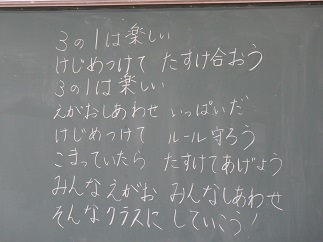 ３の１は楽しい
けじめつけて たすけ合おう
３の１は楽しい
えがおしあわせ いっぱいだ
けじめつけて ルール守ろう
こまっていたら たすけてあげよう
みんなえがお みんなしあわせ
そんなクラスに していこう！